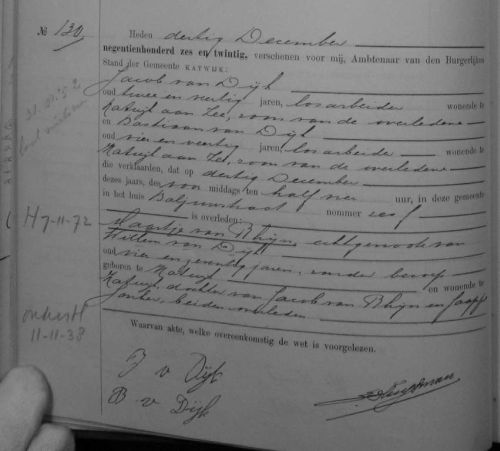 № 130.
Heden dertig December
negentienhonderd zes en twintig, verschenen voor mij, Ambtenaar van den Burgerlijken
Stand der Gemeente KATWIJK:
Jacob van Dijk
oud twee en veertig jaren, los arbeider wonende te
Katwijk aan Zee, zoon van de overledene
en Bastiaan van Dijk
oud vier en veertig jaren, los arbeider wonende te
Katwijk aan Zee, zoon van de overledene
die verklaarden, dat op dertig December
dezes jaars, des voor middags ten half vier uur, in deze gemeente
in het huis nommer
is overleden:
Haasje van Rhijn echtgenoote van
Willem van Dijk
oud vier en jaren, zonder beroep
geboren te Katwijk en wonende te
Katwijk, dochter van Jacob van Rhijn en
Jonker, beiden overleden
Waarvan akte, welke overeenkomstig de wet is voorgelezen.
J v Dijk
B v Dijk
H 7-11-72
11-11-38